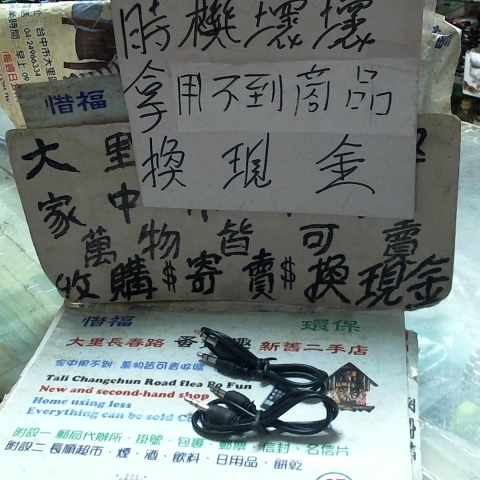 時機壞壞
拿用不到商品
換現金
台中市大里區
04-24966334
惜福
大里
家中
萬物皆可賣
收購$寄賣$換現金
惜福 環保
大里長春路 蚤 趣 新舊二手店
家中用不到 萬物皆可寄收購
Tali Changchun Road flea Bo Fun
New and second-hand shop
Home using less
Everything can be sold
附設一 郵局代辦所、掛號、包裹、郵票、信封、名信片
附設二 長順超市、煙、酒、飲料、日用品、餅乾